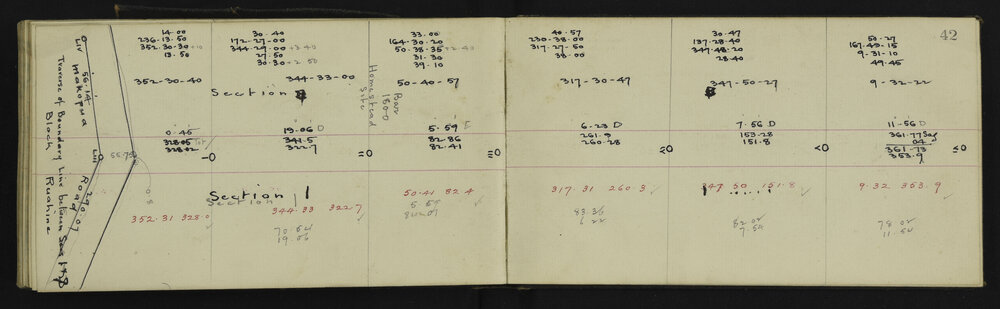 42
Traverse of Boundary Line between Secs 1 & 8
Block Ruahine
Makopua Road
56.14
290.07
LIV
LVII
55.75
14.00
236.13.50
352.30.30 +10
13.50
352-30-40
0.45
328.05 Tot
328.02
-0
352.31 328.0
30.40
172-27-00
344-29-00 +3 40
27.50
30.30 +2 50
344-33-00
Section 8
19.06 D
341.5
322.7
=0
Section 1
Section 1
344.33 322.7
70.54
19.06
33.00
164.30.20
50.38.35 +2.40
31.30
39.10
50-40-57
Homestead Site
Bar 1800
5.59 E
82.86
82.41
=0
50.41 82.4
5 55
40.57
230-38-00
317-27-50
38.00
317-30-47
6.23 D
261.9
260.28
≤0
317.31 260.3
83.36
6 22
30-47
137-28-40
347-48-20
28.40
347-50-27
8
7.56 D
153.28
151.8
<0
347 50 151.8
82 02
7.54
50-27
167-49-15
9-31-10
49.45
9-32-22
11-56 D
361.77 Sag
04
361.73
353.9
≤0
9.32 353.9
78 02
11.54